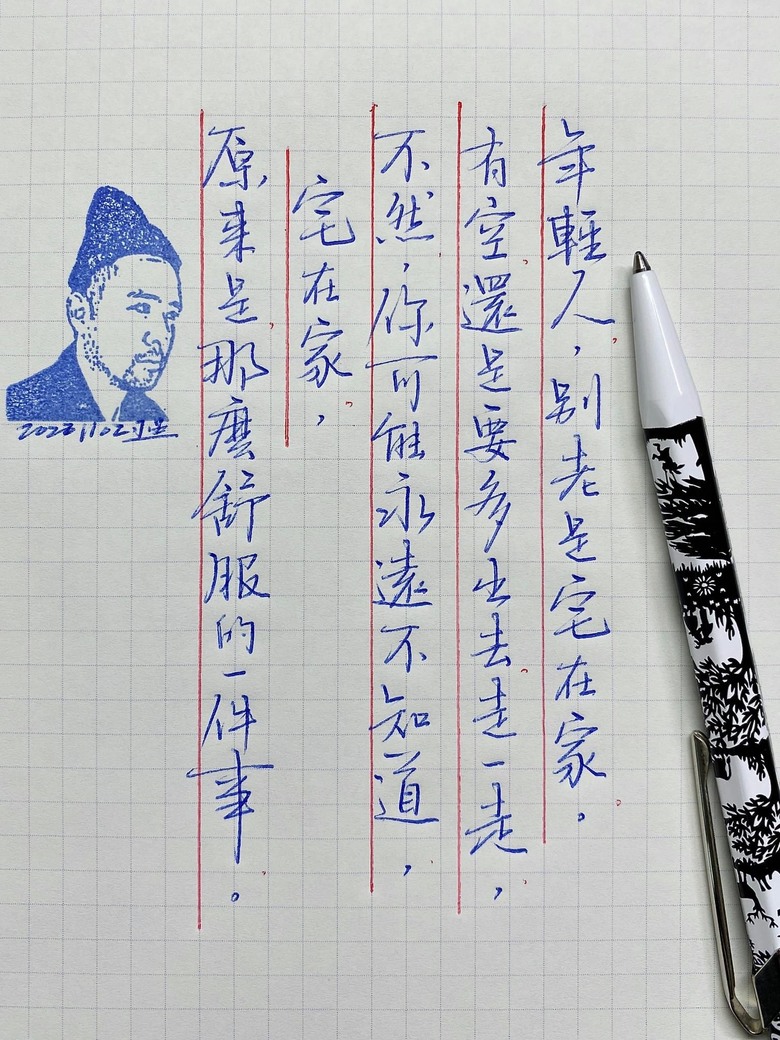 年輕人，別老是宅在家。
有空還是要多出去走一走，
不然，你可能永遠不知道，
宅在家，
原來是那麼舒服的一件事。